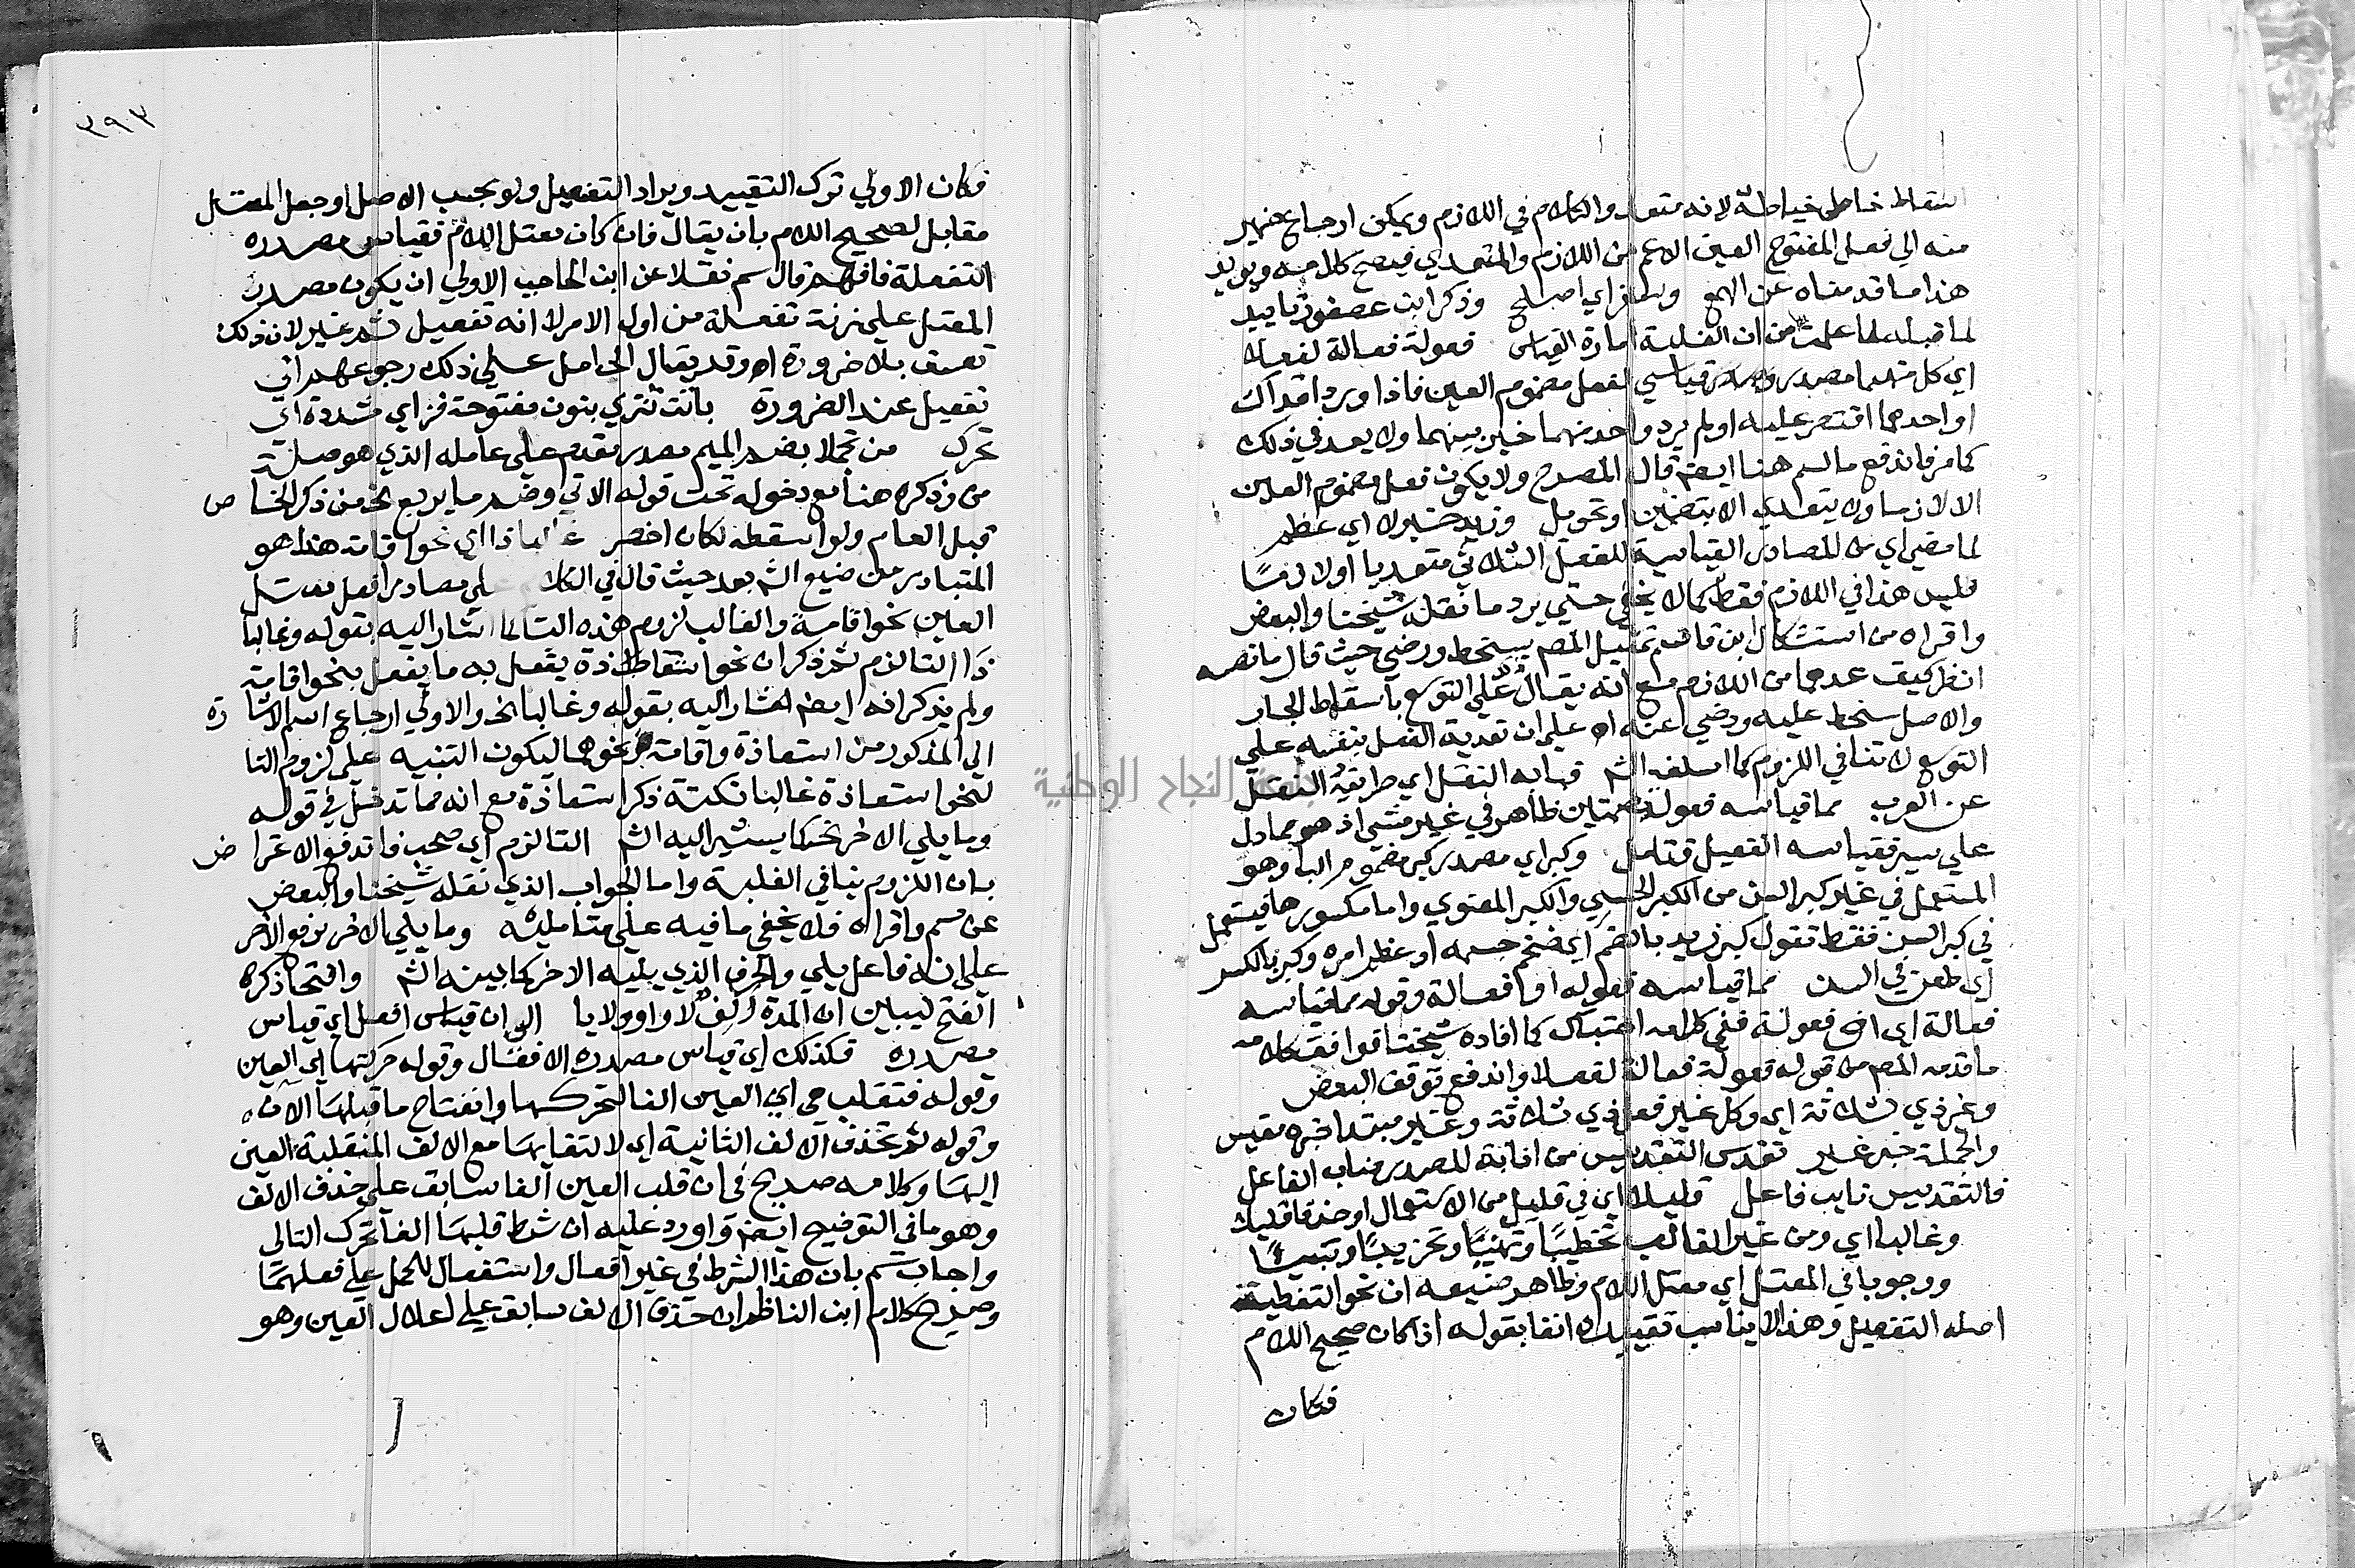 اسقاط خاط خياطة لانه متعد والكلام في اللازم ويمكن ارجاع ضمير
منه الي فعل المفتوح العين الاعم من اللازم والمتعدي فيصح كلامه ويويد
هذا ما قدمناه عن الهمع وذكر ابن عصفور تاييد
لما قبله لما علمت من ان الغلبة امارة القياس فعولة فعالة لفعلا
اي كل منهما مصدر قياسي لفعل مضموم العين فاذا وردا فذاك
او احدهما اقتصر عليه او لم يرد واحد منهما خير بينهما ولا يعد في ذلك
كما مر فاندفع ما لسم هنا ايضا قال المصرح ولا يكون فعل مضموم العين
الا لازما ولا يتعدي الا بتضمين او تحويل وزيد جزلا اي عظم
لما مضي اي من المصادر القياسية للفعل الثلاثي متعديا او لازما
فليس هذا في اللازم فقط كما لا يخفي حتي يرد ما نقله شيخنا والبعض
واقراه من استشكال ابن قاسم تمثيل المصم بسخط ورضي حيث قال ما نصه
انظر كيف عدهما من اللازم مع انه يقال علي التوسع باسقاط الجار
والاصل سخط عليه ورضي عنه اه علي ان تعدية الفعل بنفسه علي
التوسع لا تنافي اللزوم كما اسلفه الشم فبابه النقل اي طريقه النقل
عن العرب مما قياسه فعول بضمتين ظاهر في غير مشي اذ هو مما دل
علي سير فقياسه الفعيل فتامل وكبر اي مصدر كبر مضموم الباء وهو
المستعمل في غير كبر السن من الكبر الحسي والكبر المعنوي واما مكسورها فيستعمل
في كبر السن فقط تقول كبر زيد بالضم اي ضخم جسمه او عظم امره وكبر بالكسر
اي طعن في السن مما قياسه فعوله او فعالة وقوله مما قياسه
فعالة اي او فعولة ففي كلامه احتباك كما افاده شيخنا فوافق كلامه
ما قدمه المصم من قوله فعولة فعالة لفعلا واندفع توقف البعض
وغير ذي ثلاثة اي وكل غير فعل ذي ثلاثة وغير مبتدا خبره مقيس
والجملة خبر غير تقدس التقديس من انابة المصدر مناب الفاعل
فالتقديس نايب فاعل قليلا اي في قليل من الاستعمال او حذفا قليلا
وغالبا اي ومن غير الغالب تخطيئا وتهنيئا وتجزيئا وتنبيئا
ووجوبا في المعتل اي معتل اللام وظاهر صنيعه ان نحو التغطية
اصله التفعيل وهذا لا يناسب تقييده انفا بقوله اذا كان صحيح اللام
فكان
٣٩٣
فكان الاولي ترك التقييد ويراد التفعيل ولو بحسب الاصل او جعل المعتل
مقابل لصحيح اللام بان يقال فان كان معتل اللام فقياس مصدره
التفعلة فافهم قال سم نقلا عن ابن الحاجب الاولي ان يكون مصدر
المعتل علي زنة تفعلة من اول الامر لا انه تفعيل ثم غير لان ذلك
تعسف بلا ضرورة اه وقد يقال الحامل علي ذلك رجوعهم الي
تفعيل عند الضرورة باتت تنزي بنون مفتوحة فزاي مشددة اي
تحرك من تجملا بضم الميم مصدر مقدم علي عامله الذي هو صلة
من وذكره هنا مع دخوله تحت قوله الاتي وضم ما يربع الخ من ذكر الخاص
قبل العام ولو اسقطه لكان اخصر غالبا ذا اي نحو اقامة هذا هو
المتبادر من صنيع الشم بعد حيث قال في الكلام علي مصادر افعل معتل
العين نحو اقامة والغالب لزوم هذه التاء كما اشار اليه بقوله وغالبا
ذا التا لزم ثم ذكر ان نحو استعاذة يفعل به ما يفعل بنحو اقامة
ولم يذكر انه ايضا اشار اليه بقوله وغالبا الخ والاولي ارجاع اسم الاشارة
الي المذكور من استعاذة واقامة ونحوهما ليكون التنبيه علي لزوم التا
لنحو استعاذة غالبا نكتة ذكر استعاذة مع انه مما تدخل في قوله
وما يلي الاخر الخ كما يشير اليه الشم التا لزم اي صحب فاندفع الاعتراض
بان اللزوم ينافي الغلبة واما الجواب الذي نقله شيخنا والبعض
عن سم واقراه فلا يخفي ما فيه علي متامليه وما يلي الاخر برفع الاخر
علي انه فاعل يلي والحرف الذي يليه الاخر كما بينه الشم وافتحا ذكره
الفتح ليبين ان المدة الف لا واو ولا يا ان قياس افعل اي قياس
مصدره فكذلك اي قياس مصدره الافعال وقوله حركتها اي العين
وقوله فتقلب هي اي العين الفا لتحركها وانفتاح ما قبلها الان
وقوله ثم تحذف الالف الثانية اي لالتقايها مع الالف المنقلبة العين
اليها وكلامه صريح في ان قلب العين الفا سابق علي حذف الالف
وهو ما في التوضيح ايضا واورد عليه ان شرط قلبها الفا تحرك التالي
واجاب سم بان هذا الشرط في غير افعال واستفعال للحمل علي فعلهما
وصريح كلام ابن الناظم ان حذف الالف سابق علي اعلال العين وهو
جامعة النجاح الوطنية